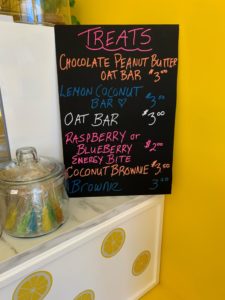 TREATS
CHOCOLATE PEANUT BUTTER
OAT BAR $3.00
LEMON COCONUT
BAR ♡ $3.00
OAT BAR $3.00
RASPBERRY or
BLUEBERRY $2.00
ENERGY BITE
COCONUT BROWNIE $3.00
BROWNIE 3.00